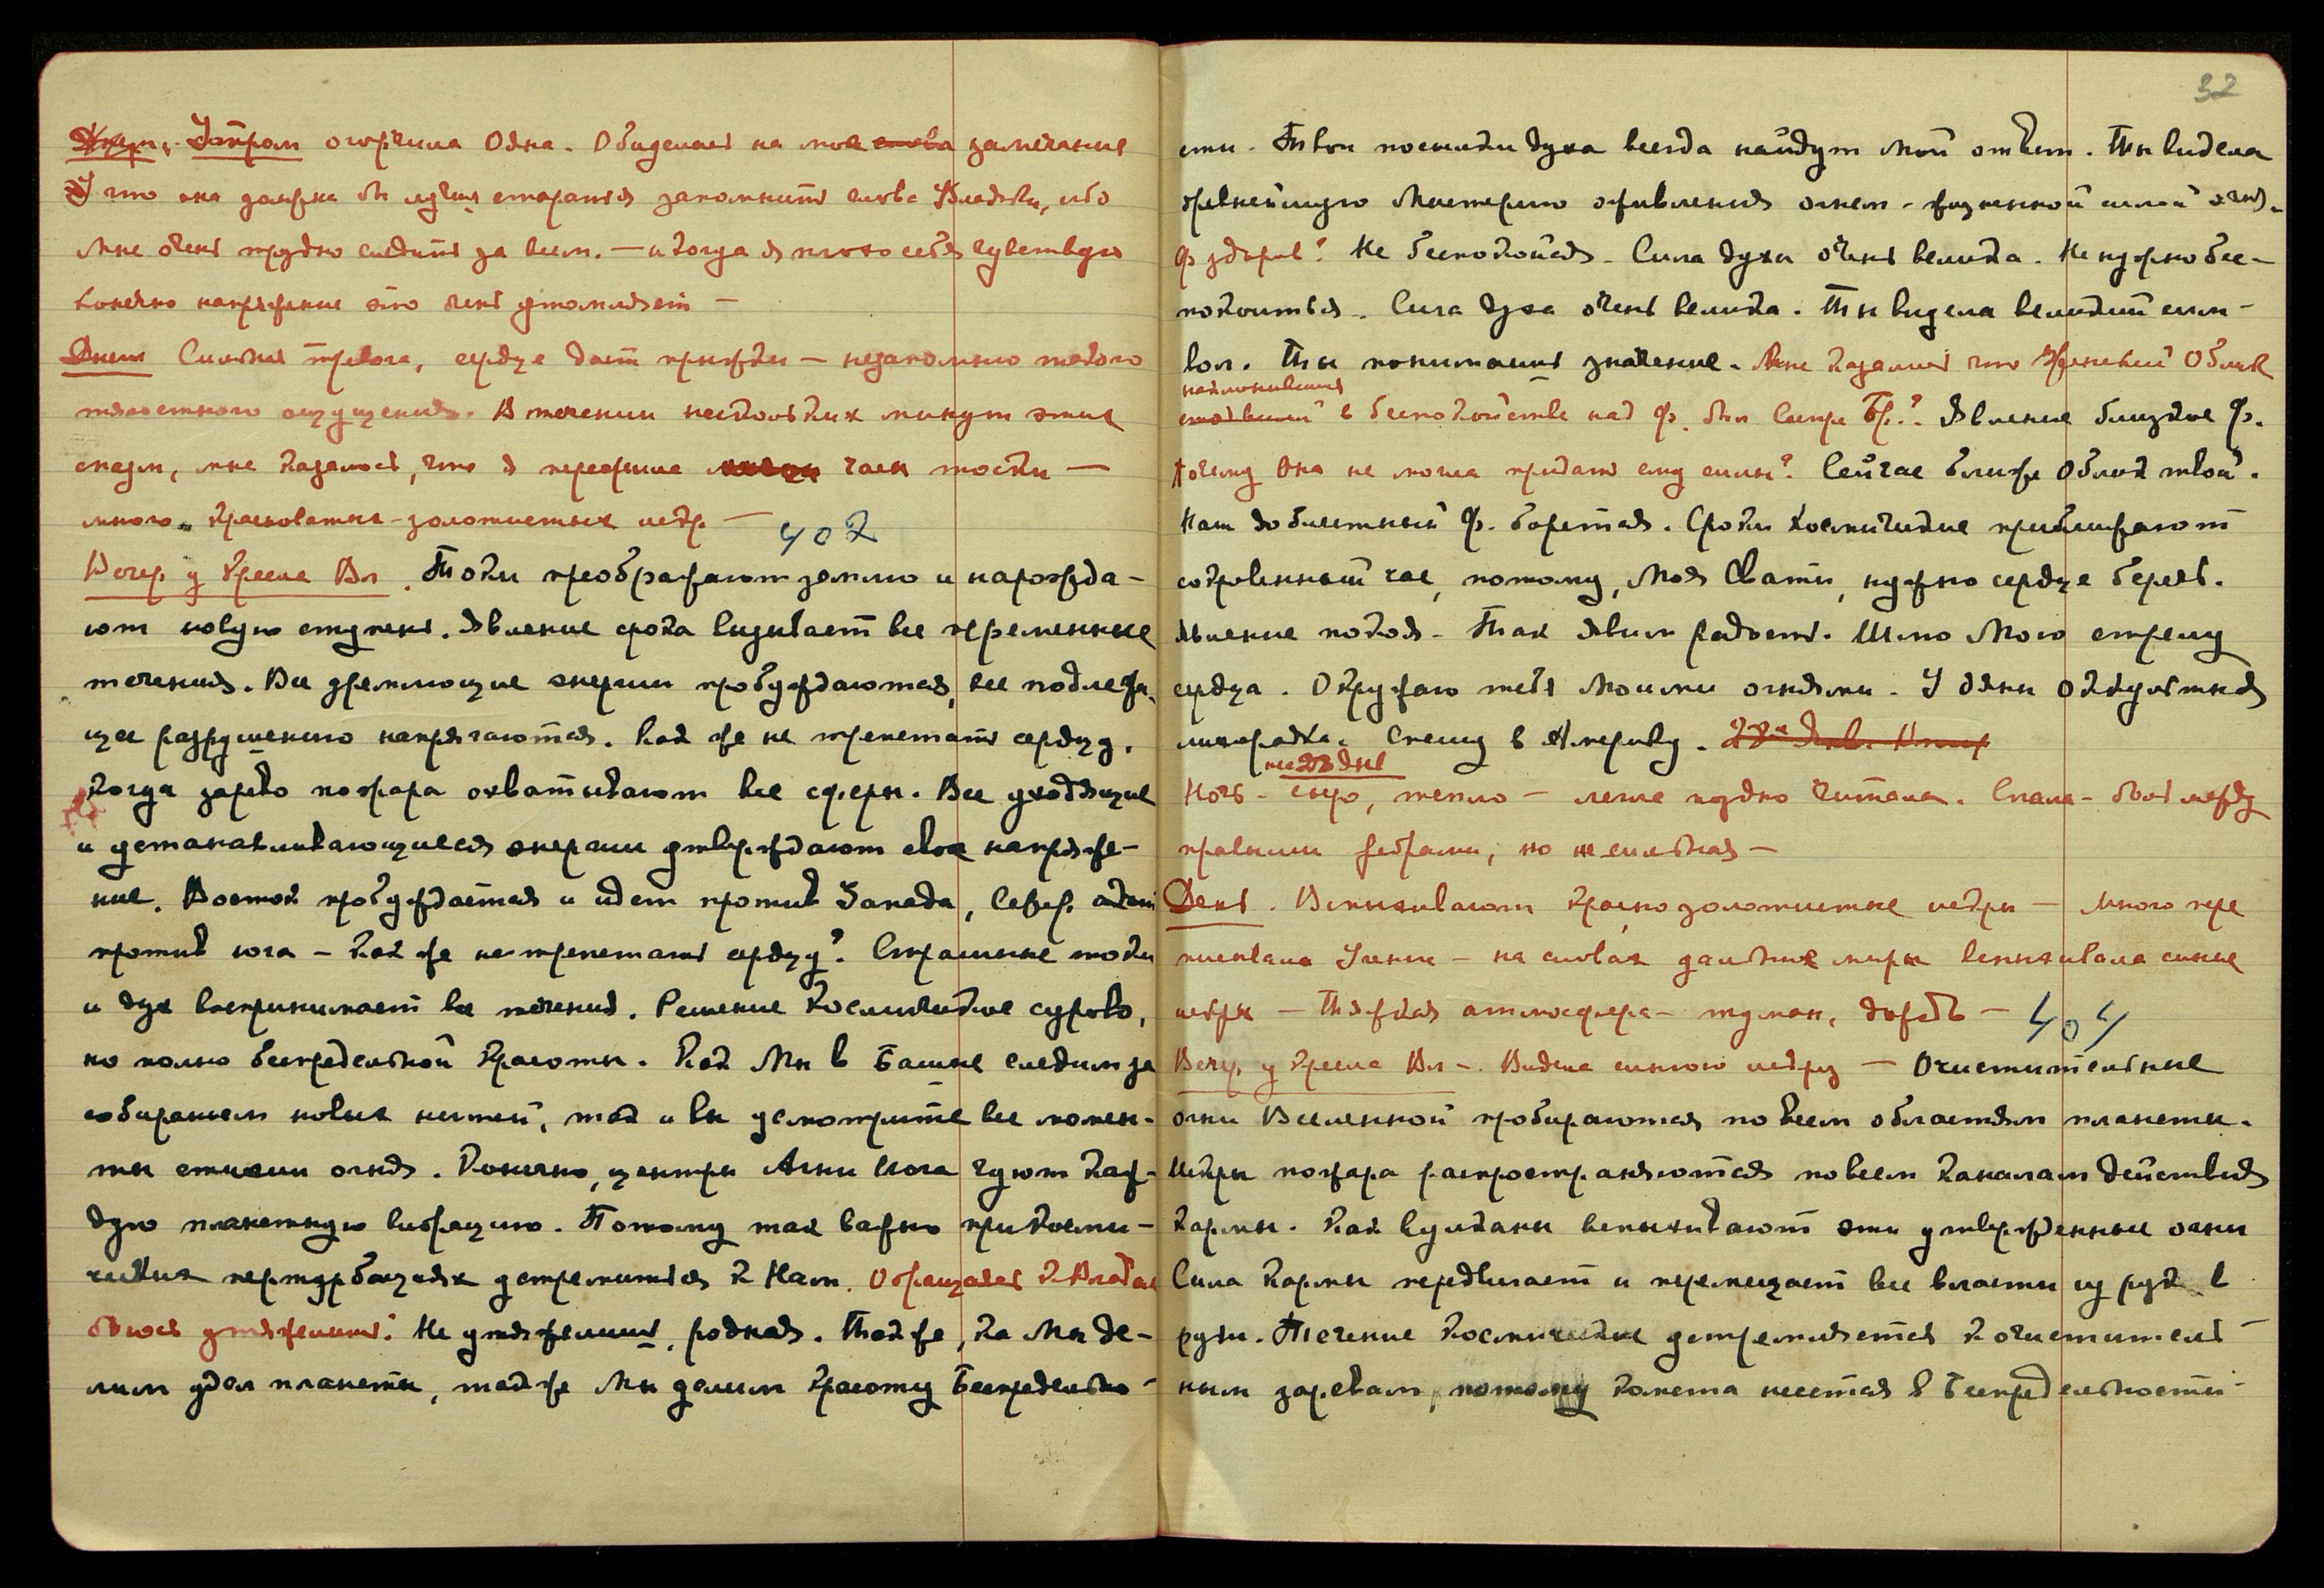 Утром огорчила Одна. Обиделась на мое замечание
что она должна бы лучше стараться запоминать слова Владыки, ибо
мне очень трудно следить за всем. — и когда я плохо себя чувствую
конечно напряжение это очень утомляет —
Днем Сильная тревога, сердце дает прыжки — незапомню такого
тягостного ощущения. В течении нескольких минут этих
спазм, мне казалось, что я пережила часы тоски —
много красноватых-золотистых искр. —
402
Вечер. у Кресла Вл. Токи преображают землю и нарожда-
ют новую ступень. Явление срока вызывает все временные
течения. Все дремлющие энергии пробуждаются, все подлежа-
щее разрушению напрягаются. Как же не трепетать сердцу,
когда зарево пожара охватывают все сферы. Все уходящие
и устанавливающиеся энергии утверждают свое напряже-
ние. Восток пробуждается и идет против Запада, Север.
против юга — как же не трепетать сердцу? Страшные токи
и дух воспринимает все течения. Решение Космическое сурово,
но полно беспредельной Красоты. Как Мы в Башне следим за
собиранием новых нитей, так и вы усмотрите все момен-
ты стихии огня. Конечно, центры Агни Йога чуют каж-
дую планетную вибрацию. Потому так важно при Косми-
ческих пертурбациях устремиться к Нам. Обращаясь к Владык
боюсь утяжелить. Не утяжелишь, родная. Также, ка Мы де-
лим удел планеты, также Мы делим Красоту Беспредельно-
32
сти. Твои посылки духа всегда найдут Мой ответ. Ты видела
древнейшую Мистерию оживления огнем - жизненной силой огня.
Ф здоров? Не беспокойся. Сила духа очень велика. Не нужно бес-
покоиться. Сила духа очень велика. Ты видела великий сим-
вол. Ты понимаешь значение. Мне казалось что Женский Облик
наклонившийся
в беспокойстве над Ф. был Сестра Бр.? Явление близкое Ф.
Почему Она не могла придать ему силы? Сейчас ближе Облик твой.
Наш доблестный Ф. борется. Сроки Космические приближают
сокровенный час, потому, Моя Свати, нужно сердце беречь.
Явление покоя. Так явим радость. Шлю Мою стрелу
сердца. Окружаю тебя Моими огнями. У Одны оккультная
лихорадка. Спешу в Америку.
на 28 янв
Ночь - сыро, тепло — легла поздно читала. Спала - боль между
правыми ребрами, но не сильная —
День. Вспыхивают красно золотистые искры — много пере
писывала Учения — на словах дальние миры вспыхивала синие
искры — Тяжкая атмосфера - туман, дождь —
404
Вечер. у Кресла Вл — Видела синюю искру — Очистительные
огни Вселенной пробираются по всем областям планеты.
Искры пожара распространяются по всем каналам действия
Кармы. Как вулканы вспыхивают эти утвержденные огни
Сила Кармы передвигает и перемещает все власти из рук в
руки. Течение Космическое устремляется к очиститель-
ным заревам, потому комета несется в Беспредельности-